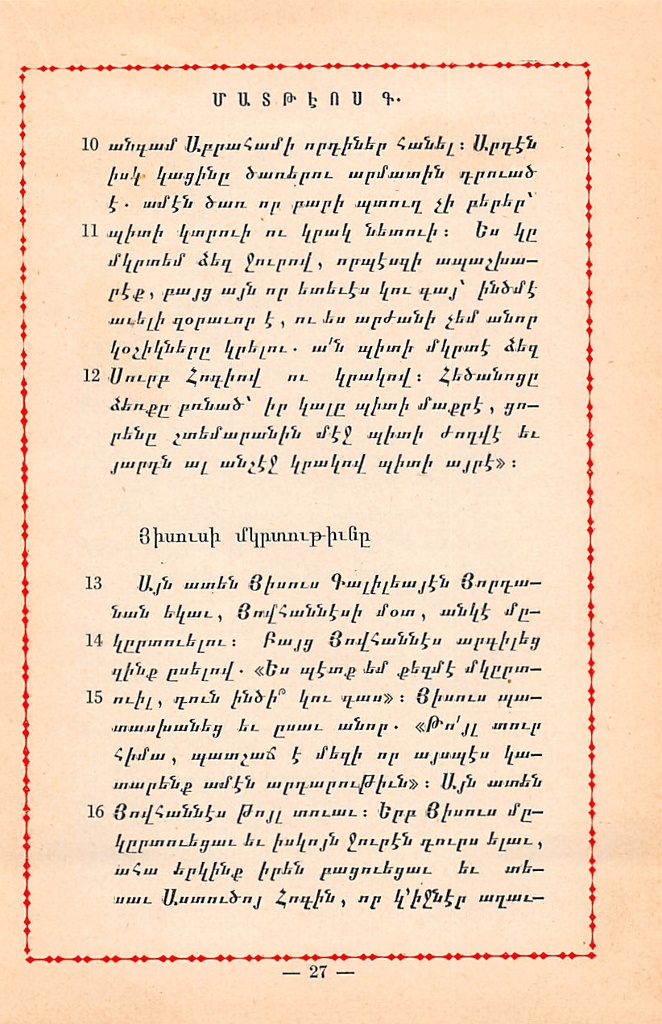 ՄԱՏԹԷՈՍ Գ.
10 անդամ Աբրահամի որդիներ հանել։ Արդէն
իսկ կացինը ծառերու արմատին դրուած
է. ամէն ծառ որ բարի պտուղ չի բերեր՝
11 պիտի կտրուի ու կրակ նետուի։ Ես կը
մկրտեմ ձեզ ջուրով, որպէսզի ապաշխա—
րէք, բայց այն որ ետեւէս կու գայ՝ ինծմէ
աւելի զօրաւոր է, ու ես արժանի չեմ անոր
կօշիկները կրելու. ա՛ն պիտի մկրտէ ձեզ
12 Սուրբ Հոգիով ու կրակով։ Հեծանոցը
ձեռքը բռնած՝ իր կալը պիտի մաքրէ, ցո—
րենը շտեմարանին մէջ պիտի ժողվէ եւ
յարդն ալ անշէջ կրակով պիտի այրէ»։
Յիսուսի մկրտութիւնը
13 Այն ատեն Յիսուս Գալիլեայէն Յորդա—
նան եկաւ, Յովհաննէսի մօտ, անկէ մը—
14 կըրտուելու։ Բայց Յովհաննէս արգիլեց
զինք ըսելով. «Ես պէտք եմ քեզմէ մկըրտ—
15 ուիլ, դուն ինծի՞ կու գաս»։ Յիսուս պա—
տասխանեց եւ ըսաւ անոր. «Թո՛յլ տուր
հիմա, պատշաճ է մեզի որ այսպէս կա—
տարենք ամէն արդարութիւն»։ Այն ատեն
16 Յովհաննէս թոյլ տուաւ։ Երբ Յիսուս մը—
կըրտուեցաւ եւ իսկոյն ջուրէն դուրս ելաւ,
ահա երկինք իրեն բացուեցաւ եւ տե—
սաւ Աստուծոյ Հոգին, որ կ՚իջնէր աղաւ—
— 27 —